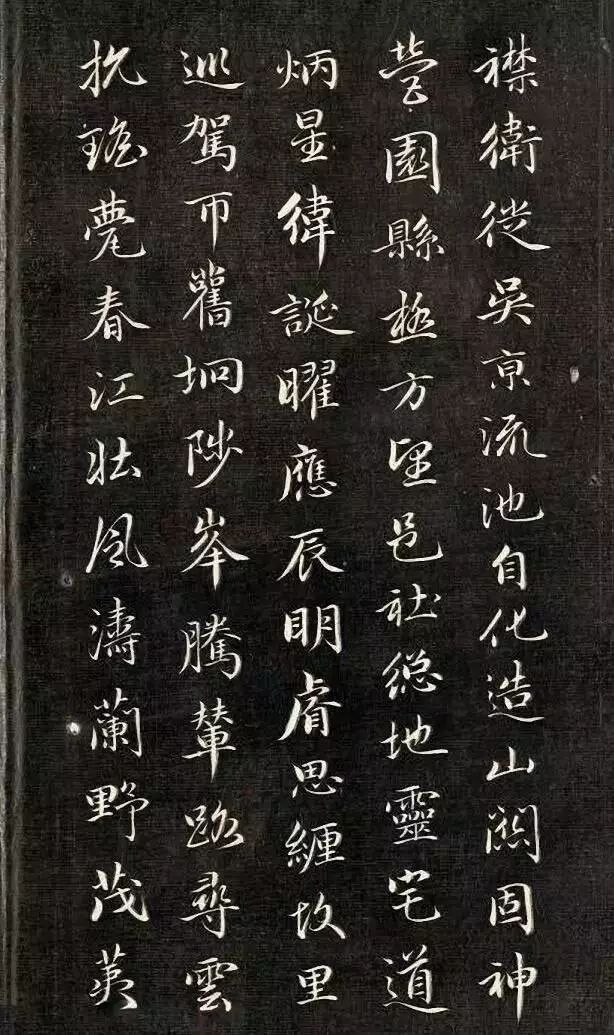 襟衛徙吳京流池自化造山關固神
營園縣極方望邑社總地靈宅道
炳星緯誕曜應辰明睿思纏故里
巡駕帀舊坰陟峯騰輦路尋雲
抗瑤甍春江壯風濤蘭野茂荑